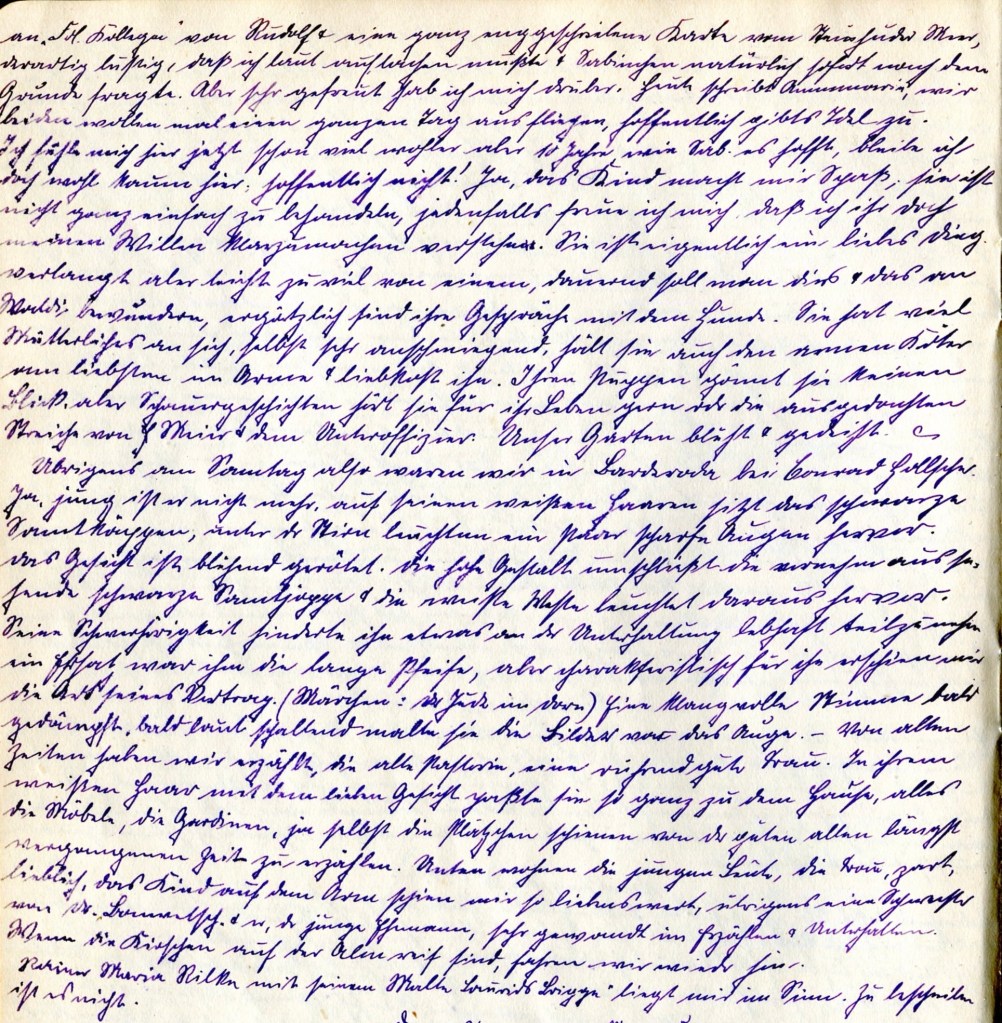 an „Frl. Kollegin" von Rudolf & eine ganz enggeschriebene Karte vom Steinhuder Meer,
derartig lustig, daß ich laut auflachen mußte & Sabinchen natürlich sofort nach dem
Grunde fragte. Aber sehr gefreut hab ich mich drüber. Heute schreibt Annemarie, wir
beiden wollen mal einen ganzen Tag ausfliegen, hoffentlich gibts Idel zu.
Ich fühle mich hier jetzt schon viel wohler aber 10 Jahre, wie Sab. es hofft, bleibe ich
doch wohl kaum hier; hoffentlich nicht! Ja, das Kind macht mir Spaß, sie ist
nicht ganz einfach zu behandeln, jedenfalls freue ich mich, daß ich ihr doch
meinen Willen klarzumachen verstehe. Sie ist eigentlich ein liebes Ding,
verlangt aber leicht zu viel von einem, dauernd soll man dies & das an
Waldi bewundern, ergötzlich sind ihre Gespräche mit dem Hunde. Sie hat viel
Mütterliches an sich, selbst sehr anschmiegend, hält sie auch den armen Köter
am liebsten im Arme & liebkost ihn. Ihren Puppen gönnt sie keinen
Blick, aber Schauergeschichten hört sie für ihr Leben gern oder die ausgedachten
Streiche von Meier & dem Unteroffizier. Unser Garten blüht & gedeiht.
Übrigens am Samtag also waren wir in Barderode bei Conrad Hölscher.
Ja, jung ist er nicht mehr, auf seinen weißen Haaren sitzt das schwarze
Samtkäppchen, unter der Stirn leuchten ein Paar scharfe Augen hervor.
das Gesicht ist blühend gerötet. die hohe Gestalt umschließt die vornehm ausse-
hende schwarze Samtjoppe & die weiße Weste leuchtet daraus hervor.
Seine Schwerhörigkeit hinderte ihn etwas an der Unterhaltung lebhaft teilzunehmen
ein Ersatz war ihm die lange Pfeife, aber charakteristisch für ihn erschien mir
die Art seines Vortrag. (Märchen: der Jude im Dorn) Eine klangvolle Stimme bald
gedämpft, bald laut schallend malte sie die Bilder vor das Auge. – Von alten
Zeiten haben wir erzählt, die alte Pastorin, eine rührend gute Frau. In ihrem
weißen Haar mit dem lieben Gesicht paßte sie so ganz zu dem Hause, alles
die Möbele, die Gardinen, ja selbst die Plätzchen schienen von der guten alten längst
vergangenen Zeit zu erzählen. Unten wohnen die jungen Leute, die Frau, zart,
lieblich, das Kind auf dem Arm schien mir so liebenswert, übrigens eine Schwester
von Dr. Bonwetsch & er, der junge Ehemann, sehr gewandt im Erzählen & Unterhalten.
Wenn die Kirschen auf der Alm reif sind, fahren wir wieder hin.
Rainer Maria Rilke mit seinem „Malte Laurids Brigge" liegt mir im Sinn. Zu beschreiben
ist es nicht.